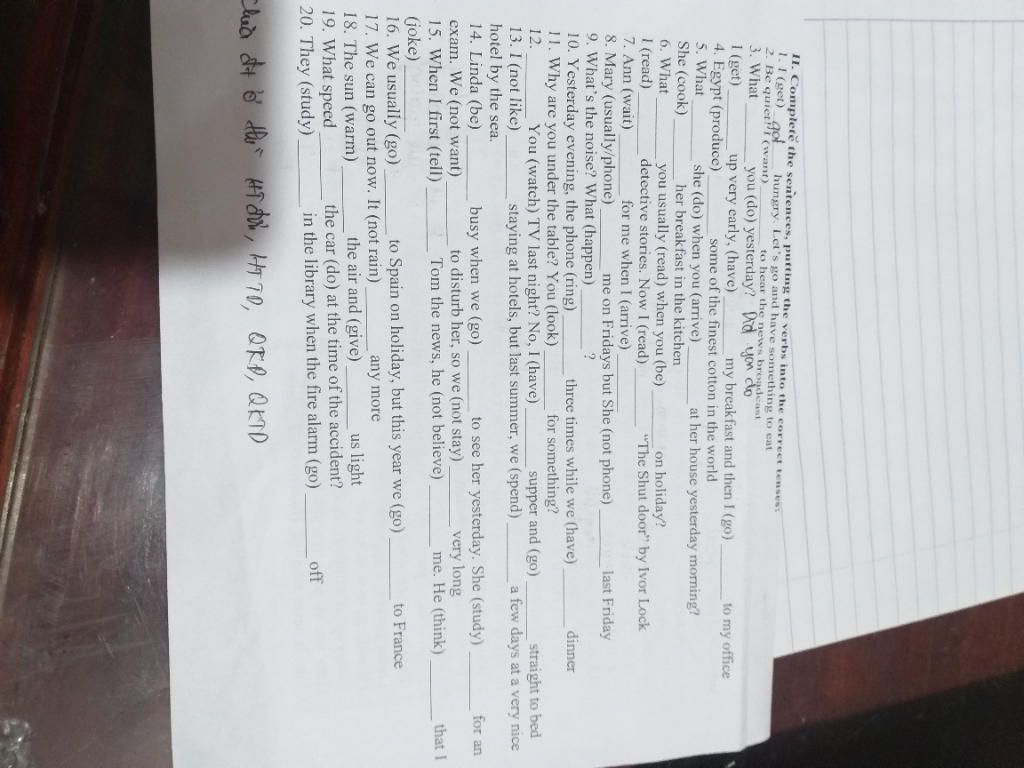 II. Complete the sentences, putting the verbs into the correct tenses:
1. I (get) got hungry. Let's go and have something to eat
2. Be quiet! I (want) ______ to hear the news broadcast
3. What ______ you (do) yesterday? Did you do
I (get) ______ up very early, (have) ______ my breakfast and then I (go) ______ to my office
4. Egypt (produce) ______ some of the finest cotton in the world
5. What ______ she (do) when you (arrive) ______ at her house yesterday morning?
She (cook) ______ her breakfast in the kitchen
6. What ______ you usually (read) when you (be) ______ on holiday?
I (read) ______ detective stories. Now I (read) ______ "The Shut door" by Ivor Lock
7. Ann (wait) ______ for me when I (arrive) ______
8. Mary (usually/phone) ______ me on Fridays but She (not phone) ______ last Friday
9. What's the noise? What (happen) ______ ?
10. Yesterday evening, the phone (ring) ______ three times while we (have) ______ dinner
11. Why are you under the table? You (look) ______ for something?
12. ______ You (watch) TV last night? No, I (have) ______ supper and (go) ______ straight to bed
13. I (not like) ______ staying at hotels, but last summer, we (spend) ______ a few days at a very nice
hotel by the sea.
14. Linda (be) ______ busy when we (go) ______ to see her yesterday. She (study) ______ for an
exam. We (not want) ______ to disturb her, so we (not stay) ______ very long
15. When I first (tell) ______ Tom the news, he (not believe) ______ me. He (think) ______ that I
(joke) ______
16. We usually (go) ______ to Spain on holiday, but this year we (go) ______ to France
17. We can go out now. It (not rain) ______ any more
18. The sun (warm) ______ the air and (give) ______ us light
19. What speed ______ the car (do) at the time of the accident?
20. They (study) ______ in the library when the fire alarm (go) ______ off
chia đt ở thì HTđơn, HTTD, QKĐ, QKTD